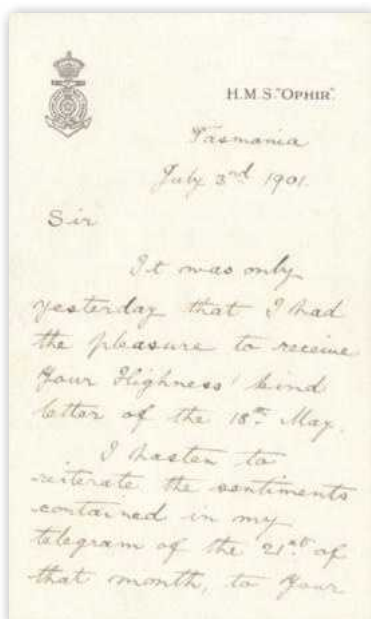 H.M.S. "OPHIR".
Tasmania
July 3rd 1901.
Sir
It was only
yesterday that I had
the pleasure to receive
Your Highness' kind
letter of the 18th May.
I hasten to
reiterate the sentiments
contained in my
telegram of the 21st of
that month, to Your